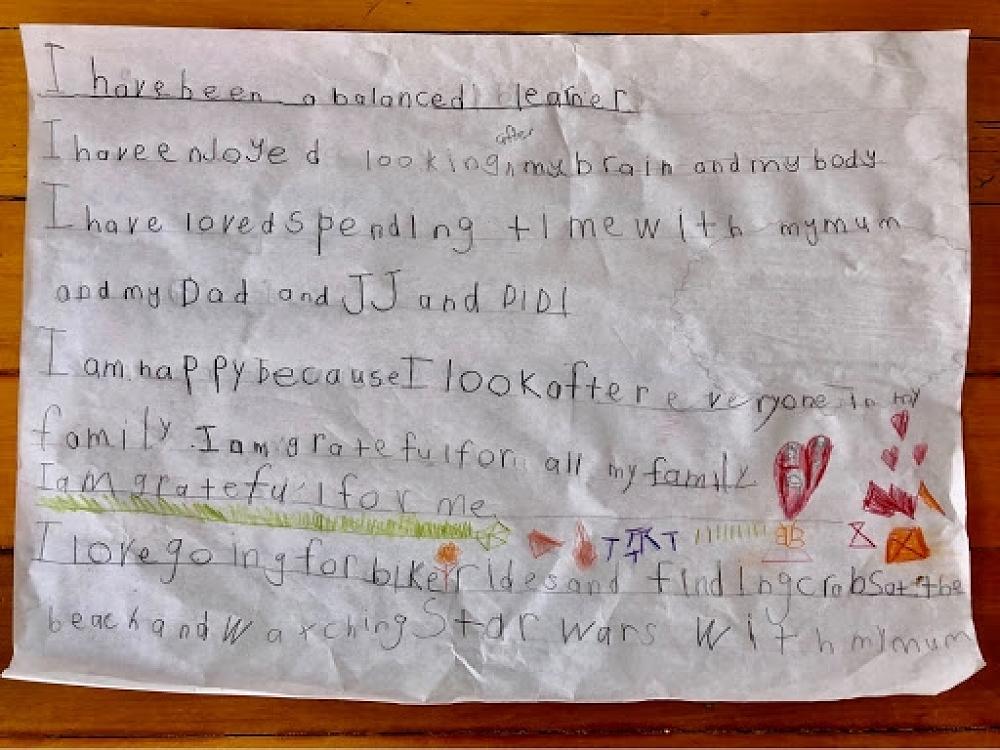 I have been a balanced learner
I have enJoyed looking after my brain and my body
I have loved spending time with my mum
and my Dad and JJ and DIDI
I am happy because I look after everyone in my
family. I am grateful for all my family
I am grateful for me.
I love going for bike rides and finding crabs at the
beach and watching Star wars with my mum